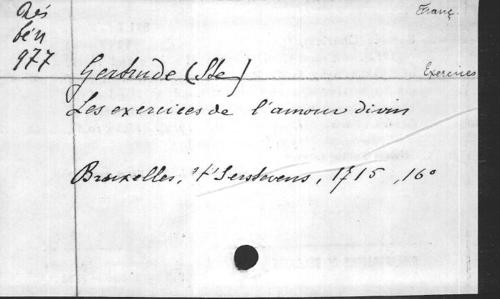 Rés
bén
977
Franç.
Gertrude (Ste)
Exercices
Les exercices de l'amour divin
Bruxelles, t'Serstevens, 1715, 16°